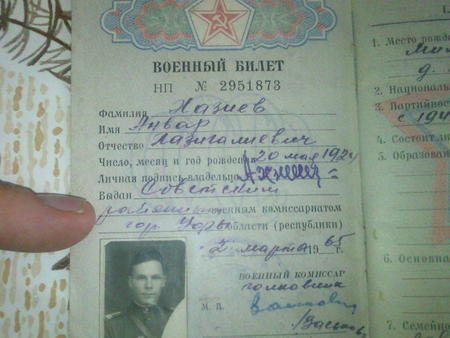 ВОЕННЫЙ БИЛЕТ
НП № 2951873
Фамилия Назиев
Имя Анвар
Отчество Назигалиевич
Число, месяц и год рождения 20 мая 192
Личная подпись владельца
Выдан Советским
районным военным комиссариатом
гор. Уфы области (республики)
марта 1965
ВОЕННЫЙ КОМИССАР
полковник
М. П.
I.
1. Место рожде
д.
2. Национальн
3. Партийност
с 194
4. Состоит ли
5. Образован
6. Основная
7. Семейно